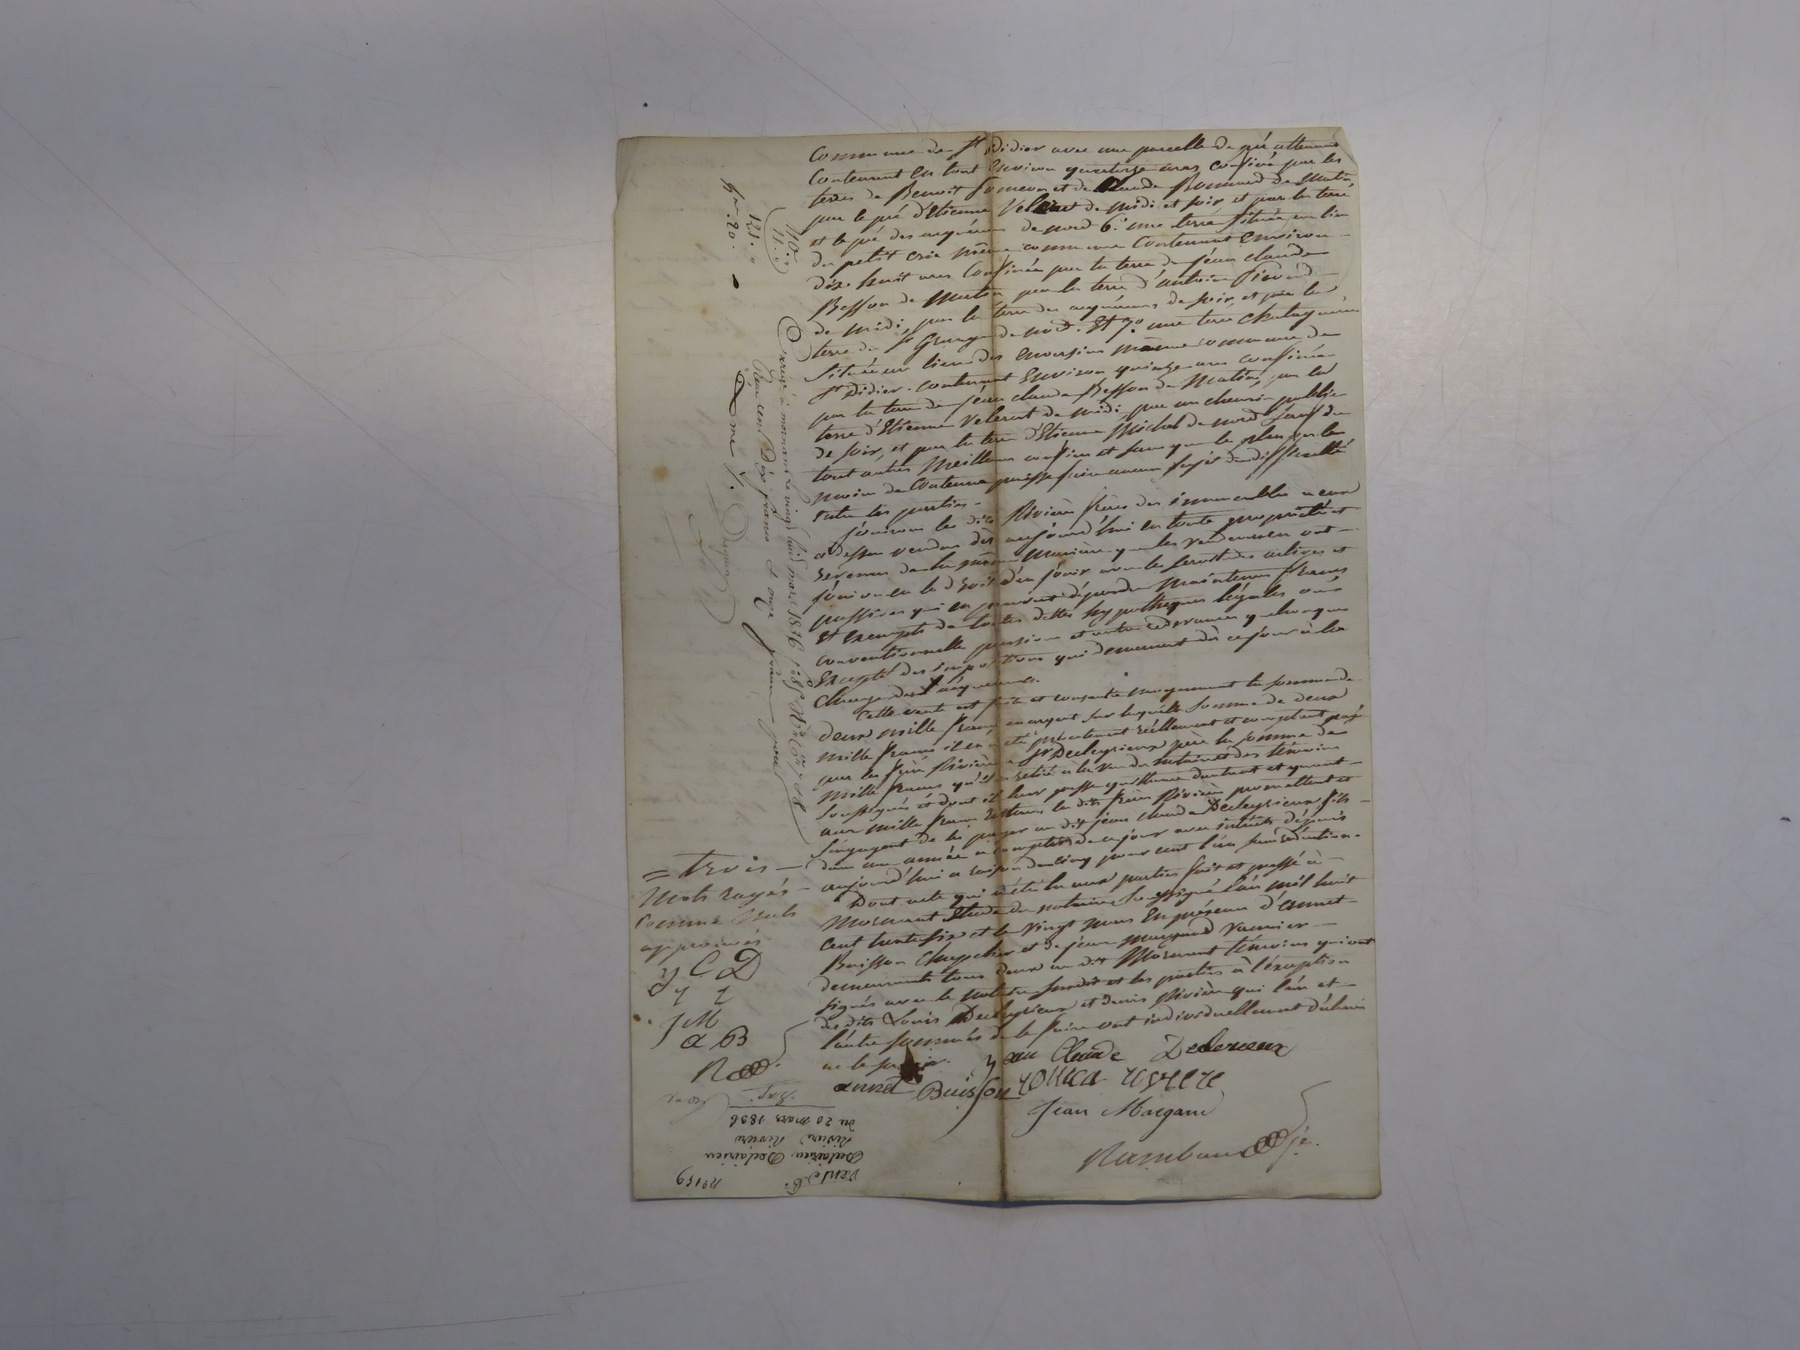 Commune de St Didier avec une parcelle de pré attenant
Contenant en tout Environ quatorze ares confiné par les
terres de Benoit et de Claude Bonnard de Matin,
par le pré d'Etienne Velerut de Midi et soir et par la terre
et le pré des acquéreurs de nord 6.° une terre située au lieu
du petit même commune Contenant Environ
dix huit ares Confinée par la terre de Jean claude
Besson de Matin par la terre d'antoine
de Midi, par la terre des acquéreurs de soir, et par la
terre de Sr de nord. Et 7.° une terre
située au lieu des même commune de
St Didier. contenant Environ quinze ares confinée
par la terre de Jean claude Besson de Matin, par la
terre d'Etienne Velerut de Midi par un chemin public
de soir, et par la terre d'Etienne Michel de nord sauf de
tout autres Meilleurs confins et sans que le plus ou le
moins de Contenue puisse faire aucun sujet de difficulté
entre les parties.
Jouiront les dits Rivière frères des immeubles à eux
ci dessus vendus dès aujourd'hui en toute propriété et
revenus de la même Manière que les vendeurs en ont
joui ou eu le droit d'en jouir avec les servitudes actives et
passives qui en peuvent dépendre Maintenus francs
Et Exempts de toutes dettes hypothèques légales ou
conventionnelle pensions et autres redevances quelconques
Excepté des impositions qui demeurent dès ce jour à la
Charge des acquéreurs.
Cette vente est faite et consentie moyennant la somme de
deux mille francs en argent sur laquelle somme de deux
mille francs il en a été présentement réellement et comptant payé
par les frères Rivière à Sr Decleyrieux père la somme de
Mille francs qu'il a retiré à la vue du notaire et des témoins
soussignés et dont il leur passe quittance d'autant et quant
aux mille francs restans les dits frères Rivière promettent et
s'engagent de les payer au dit jean claude Decleyrieux fils
dans une année à compter de ce jour avec intérêts depuis
aujourd'hui à raison de cinq pour cent l'an sans retention.
Dont acte qui a été lu aux parties fait et passé à
Mornant Etude du notaire soussigné l'an mil huit
cent trente six et le vingt mars En présence d'annet
Buisson Chapelier et de jean Margand
demeurants tous deux au dit Mornant témoins qui ont
signés avec le notaire susdit et les parties à l'exception
des dits Louis Decleyrieux et denis Rivière qui l'un et
l'autre sommés de le faire ont individuellement déclaré
ne le savoir.
Jean Claude
annet Buisson
Jean Margand
Rambaud
= trois
Mots rayés
comme nuls
approuvés
J C D
J M
a B
R
110.
11.
121.
20.
Enregé à mornant le vingt huit mars 1836
Reçu cent dix francs et onze francs
N° 159
Vente
Rivière
du 20 mars 1836